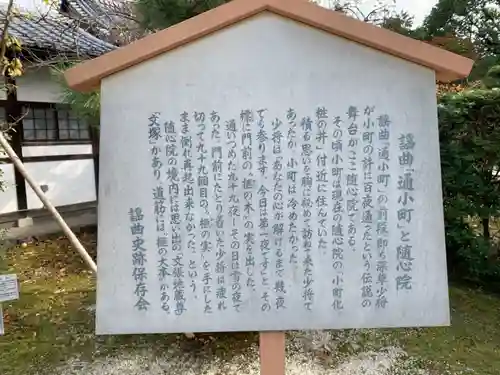 謡曲「通小町」と随心院
謡曲「通小町」の前段即ち深草少将
が小町の許に百夜通ったという伝説の
舞台がここ随心院である。
その頃小町は現在の随心院の「小町化
粧の井」付近に住んでいた。
積る思いを胸に秘めて訪ね来た少将で
あったが、小町は冷めたかった。
少将は「あなたの心が解けるまで幾夜
でも参ります。今日は第一夜です」と、その
標に門前の「榧の木」の実を出した。
通いつめた九十九夜、その日は雪の夜で
あった。門前にたどり着いた少将は疲れ
切って九十九個目の「榧の実」を手にした
まま倒れ再起出来なかった、という。
随心院の境内には思い出の「文張地蔵尊」
「文塚」があり、道筋には「榧の大木」がある。
謡曲史跡保存会